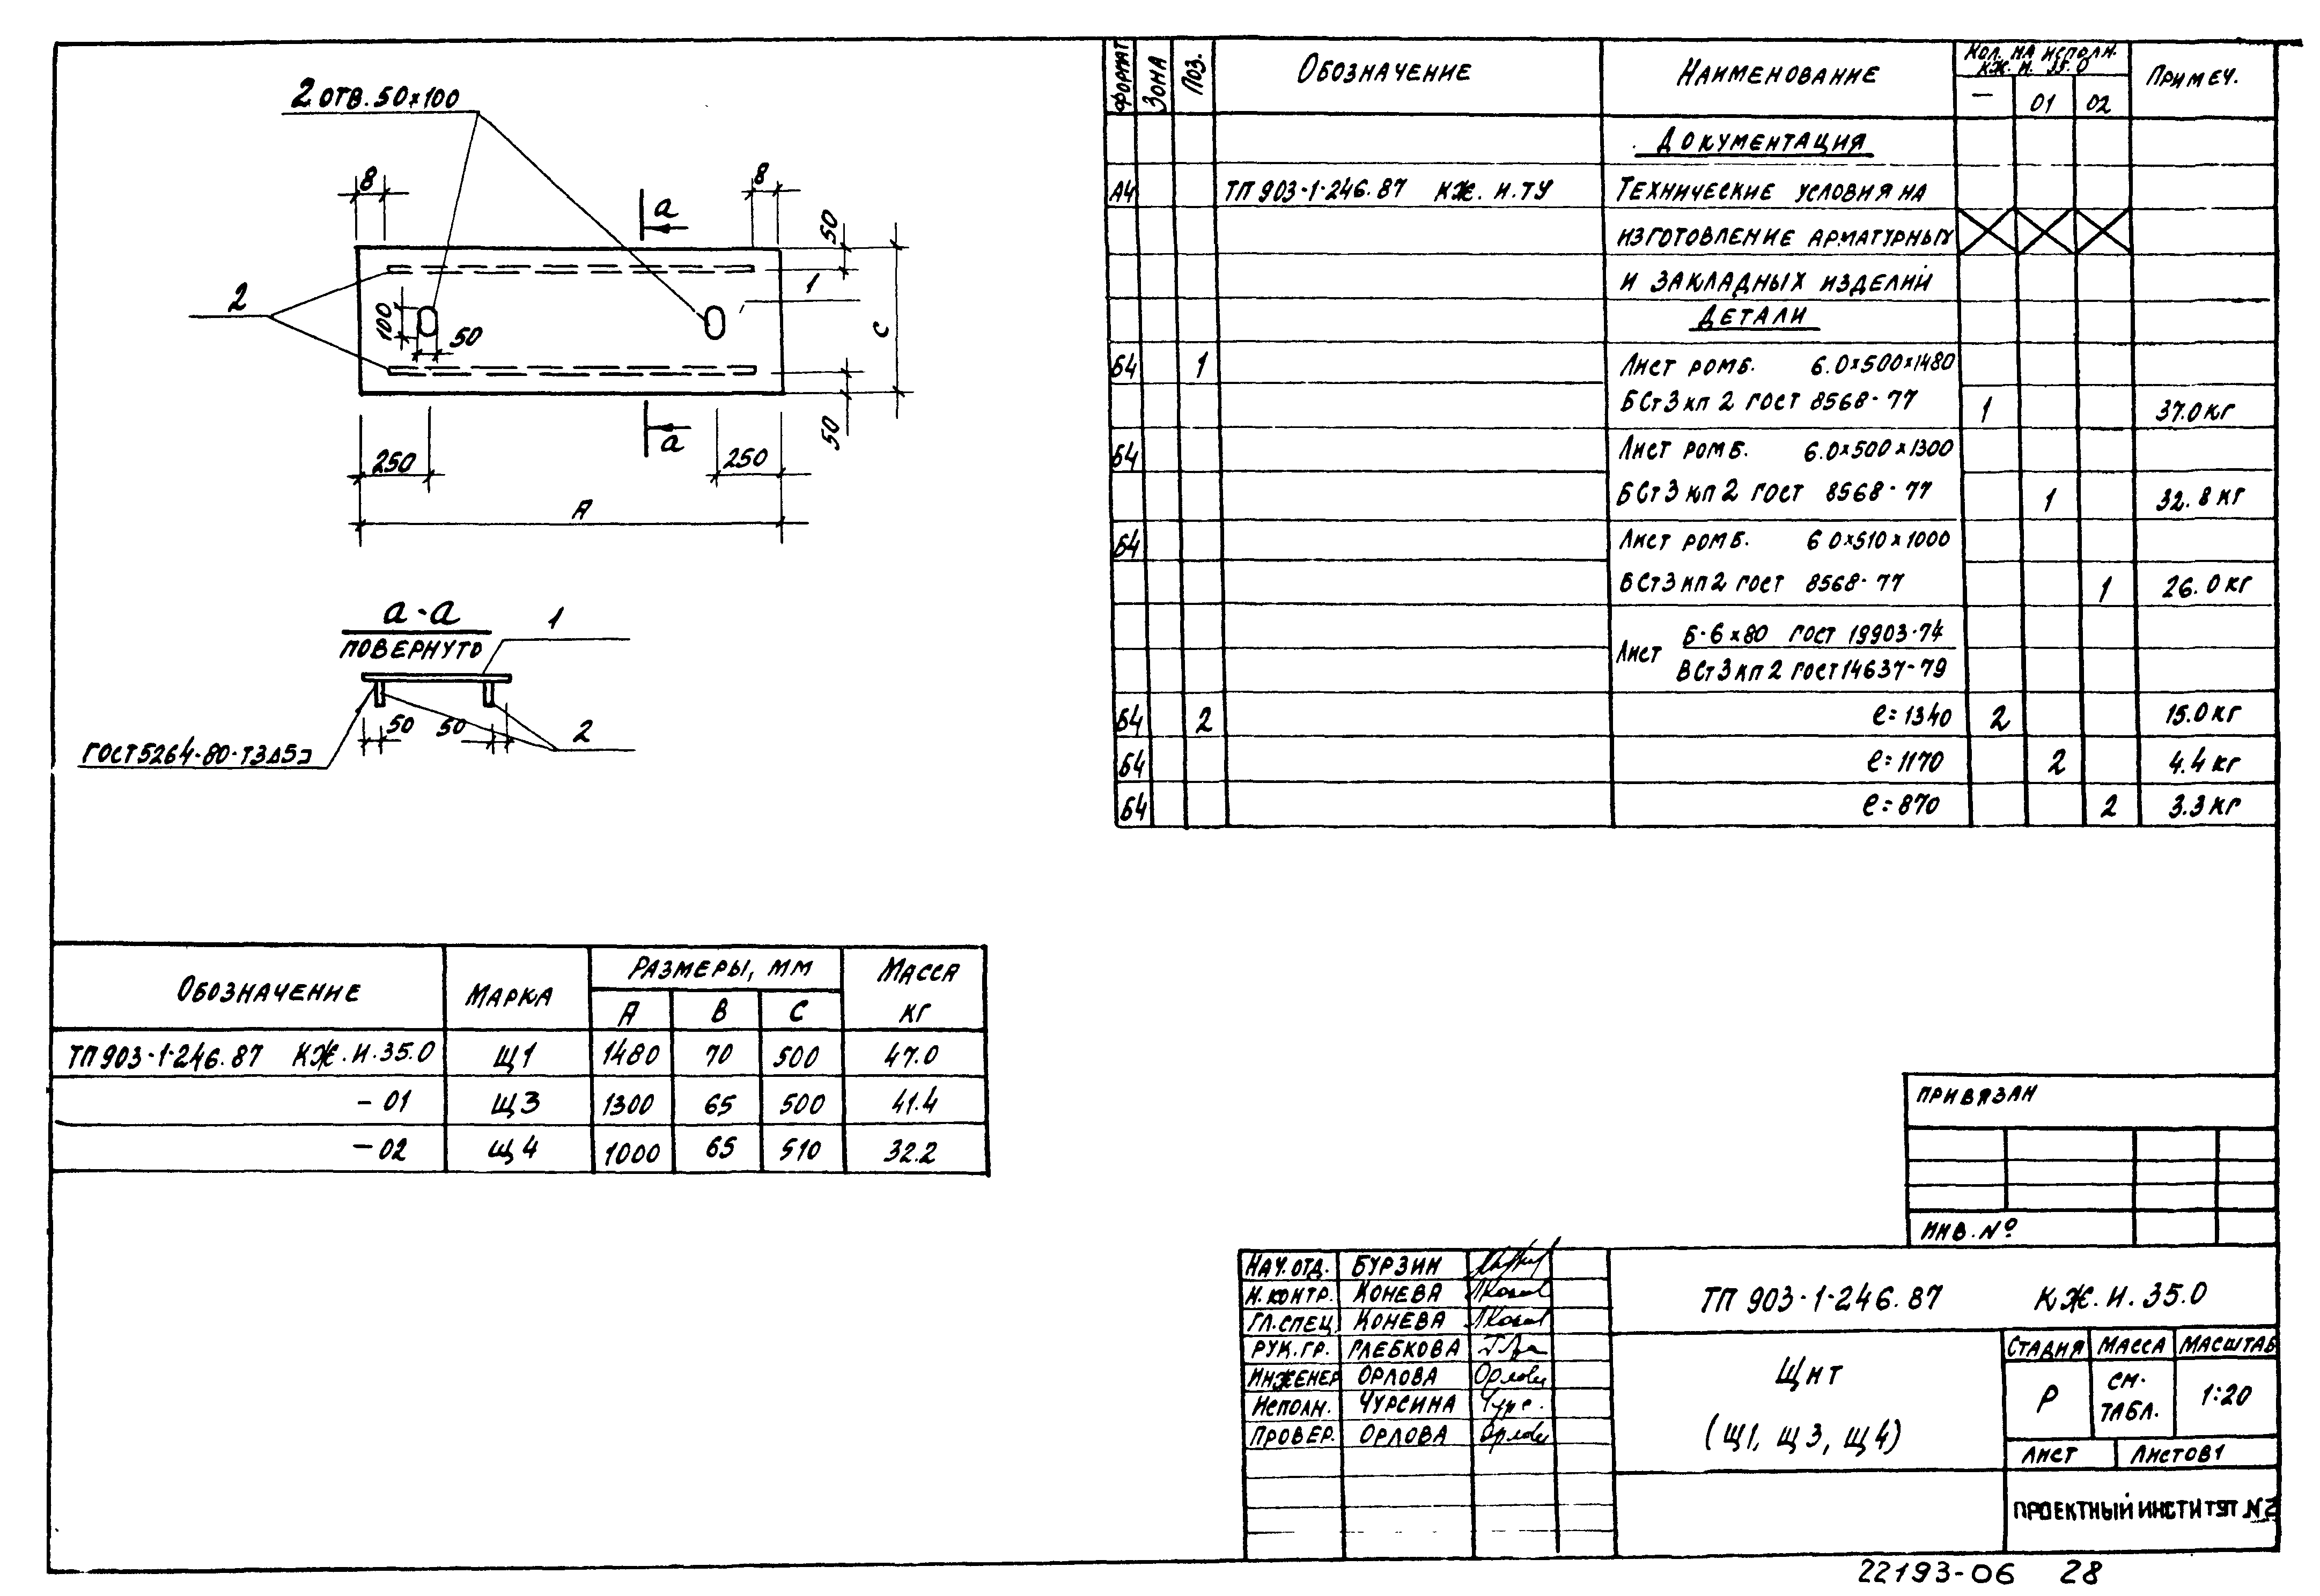 2 отв. 50×100
8
8
а
50
2
1
100
50
С
а
50
250
250
А
а-а
повернуто
1
50
50
2
ГОСТ 5264-80-Т3Δ5
Формат
Зона
Поз.
Обозначение
Наименование
Кол. на исполн.
КЖ. И. 35.0
Примеч.
—
01
02
Документация
А4
ТП 903-1-246.87 КЖ. И.ТУ
Технические условия на
изготовление арматурных
и закладных изделий
Детали
Б4
1
Лист ромб. 6.0×500×1480
БСт3кп2 ГОСТ 8568-77
1
37.0 кг
Б4
Лист ромб. 6.0×500×1300
БСт3кп2 ГОСТ 8568-77
1
32.8 кг
Б4
Лист ромб. 6 0×510×1000
ВСт3кп2 ГОСТ 8568-77
1
26.0 кг
Лист
Б-6×80 ГОСТ 19903-74
ВСт3кп2 ГОСТ 14637-79
Б4
2
ℓ=1340
2
15.0 кг
Б4
ℓ=1170
2
4.4 кг
Б4
ℓ=870
2
3.3 кг
Обозначение
Марка
Размеры, мм
Масса
кг
А
В
С
ТП 903-1-246.87 КЖ.И.35.0
Щ1
1480
70
500
47.0
-01
Щ3
1300
65
500
41.4
-02
Щ4
1000
65
510
32.2
Привязан
Инв.№
Нач.отд. Бурзин
Н.контр. Конева
Гл.спец. Конева
Рук.гр. Глебкова
Инженер Орлова
Исполн. Чурсина
Провер. Орлова
ТП 903-1-246.87 КЖ.И.35.0
Щит
(Щ1, Щ3, Щ4)
Стадия
Масса
Масштаб
Р
см.
табл.
1:20
Лист
Листов 1
Проектный институт №2
22193-06 28